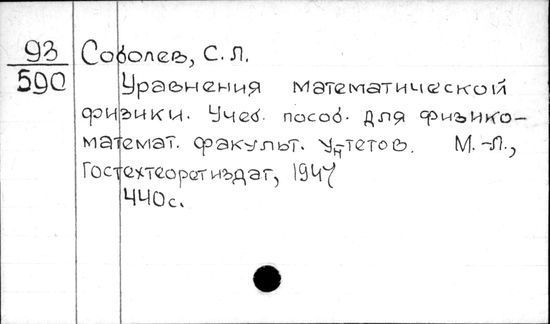 93
590
Соболев, С.Л.
Уравнения математической
физики. Учеб. пособ. для физико-
математ. факульт. ун-тетов. М.-Л.,
Гостехтеоретиздат, 1947
440с.